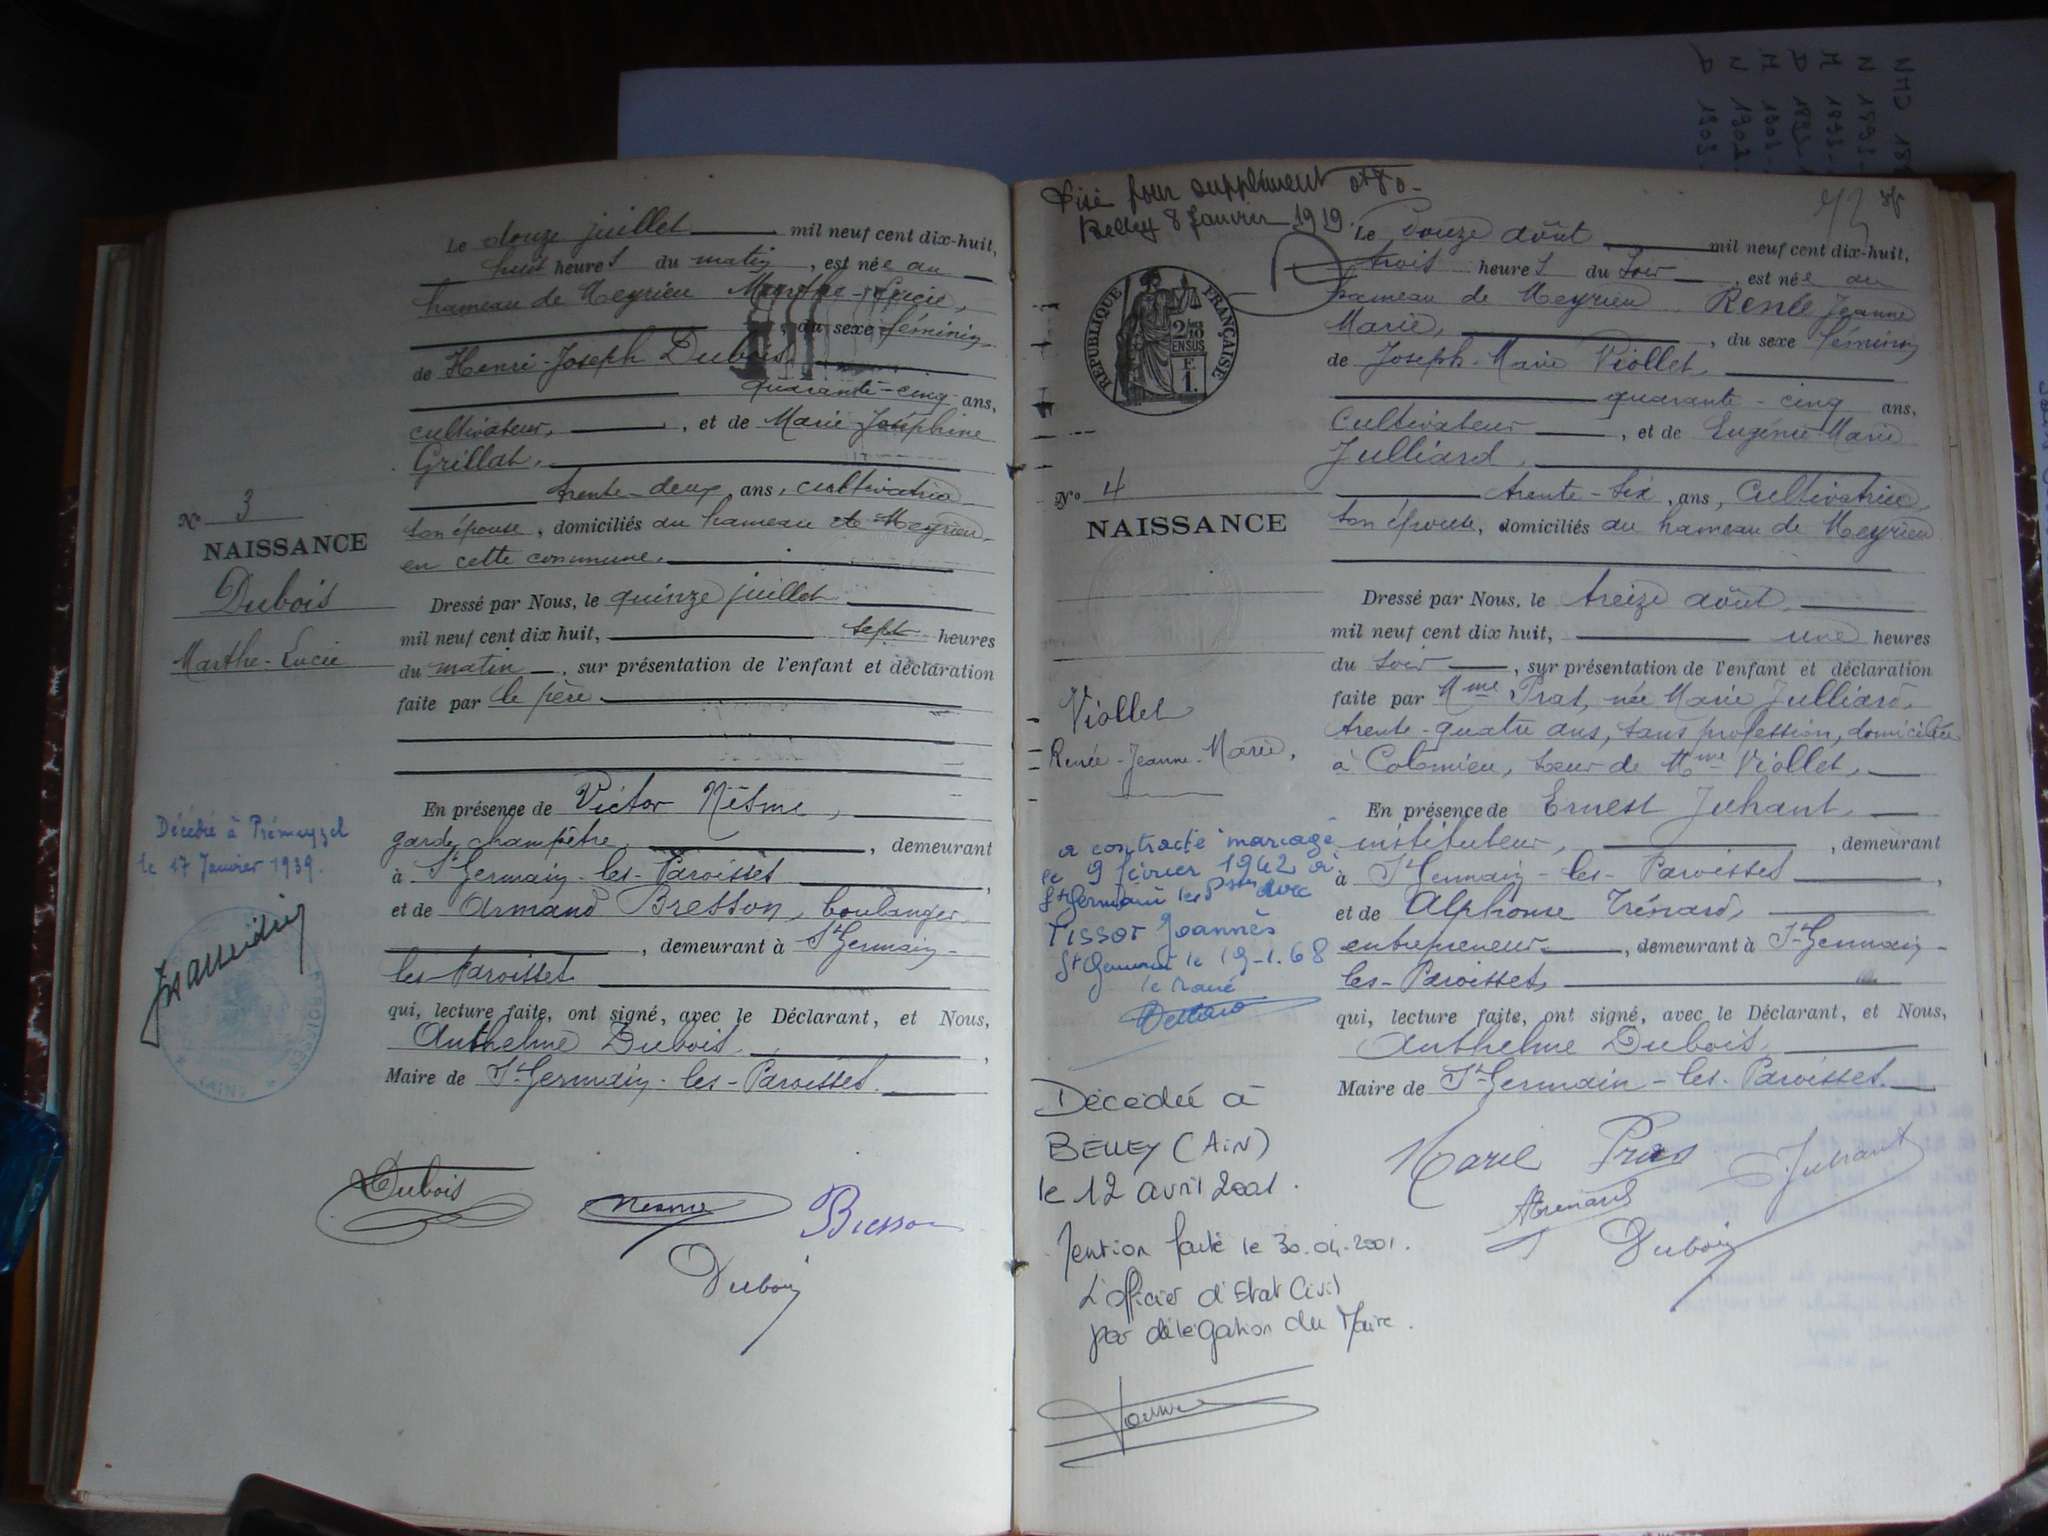 Le douze juillet mil neuf cent dix-huit,
huit heures du matin, est née au
hameau de Meyrieu Marthe-Lucie,
du sexe féminin,
de Henri-Joseph Dubois,
quarante-cinq ans,
cultivateur, et de Marie Joséphine
Grillat,
trente-deux ans, cultivatrice
son épouse, domiciliés au hameau de Meyrieu
en cette commune.
N° 3
NAISSANCE
Dubois
Marthe-Lucie
Dressé par Nous, le quinze juillet
mil neuf cent dix huit, sept heures
du matin, sur présentation de l'enfant et déclaration
faite par le père.
En présence de Victor Nesme,
garde champêtre, demeurant
à St Germain-les-Paroisses,
et de Armand Bresson, boulanger
, demeurant à St Germain-
les-Paroisses
qui, lecture faite, ont signé, avec le Déclarant, et Nous,
Anthelme Dubois,
Maire de St Germain-les-Paroisses.
Décédée à Prémeyzel
le 17 Janvier 1939.
Dubois
Nesme
Bresson
Dubois
Visé pour supplément
Belley 8 Janvier 1919.
REPUBLIQUE FRANÇAISE
2/10
EN SUS
F
1.
Le douze août mil neuf cent dix-huit,
trois heures du soir, est née au
hameau de Meyrieu Renée Jeanne
Marie, du sexe féminin
de Joseph-Marie Viollet,
quarante-cinq ans,
cultivateur, et de Eugénie-Marie
Julliard,
trente-six, ans, cultivatrice,
son épouse, domiciliés au hameau de Meyrieu
N° 4
NAISSANCE
Viollet
Renée-Jeanne-Marie,
Dressé par Nous, le treize août
mil neuf cent dix huit, une heures
du soir, sur présentation de l'enfant et déclaration
faite par Mme Prat, née Marie Julliard,
trente-quatre ans, sans profession, domiciliée
à Colomieu, soeur de Mme Viollet,
En présence de Ernest Juhant,
instituteur, demeurant
à St Germain-les-Paroisses,
et de Alphonse Trénard,
entrepreneur, demeurant à St Germain-
les-Paroisses,
qui, lecture faite, ont signé, avec le Déclarant, et Nous,
Anthelme Dubois,
Maire de St Germain-les-Paroisses.
a contracté mariage
le 9 février 1942 à
St Germain les Psses avec
TISSOT Joannès
St Germain le 19-1.68
le maire
Décédée à
BELLEY (AIN)
le 12 avril 2001.
Mention faite le 30.04.2001.
L'officier d'Etat Civil
par délégation du Maire.
Marie Prat
Juhant
ATrénard
Dubois